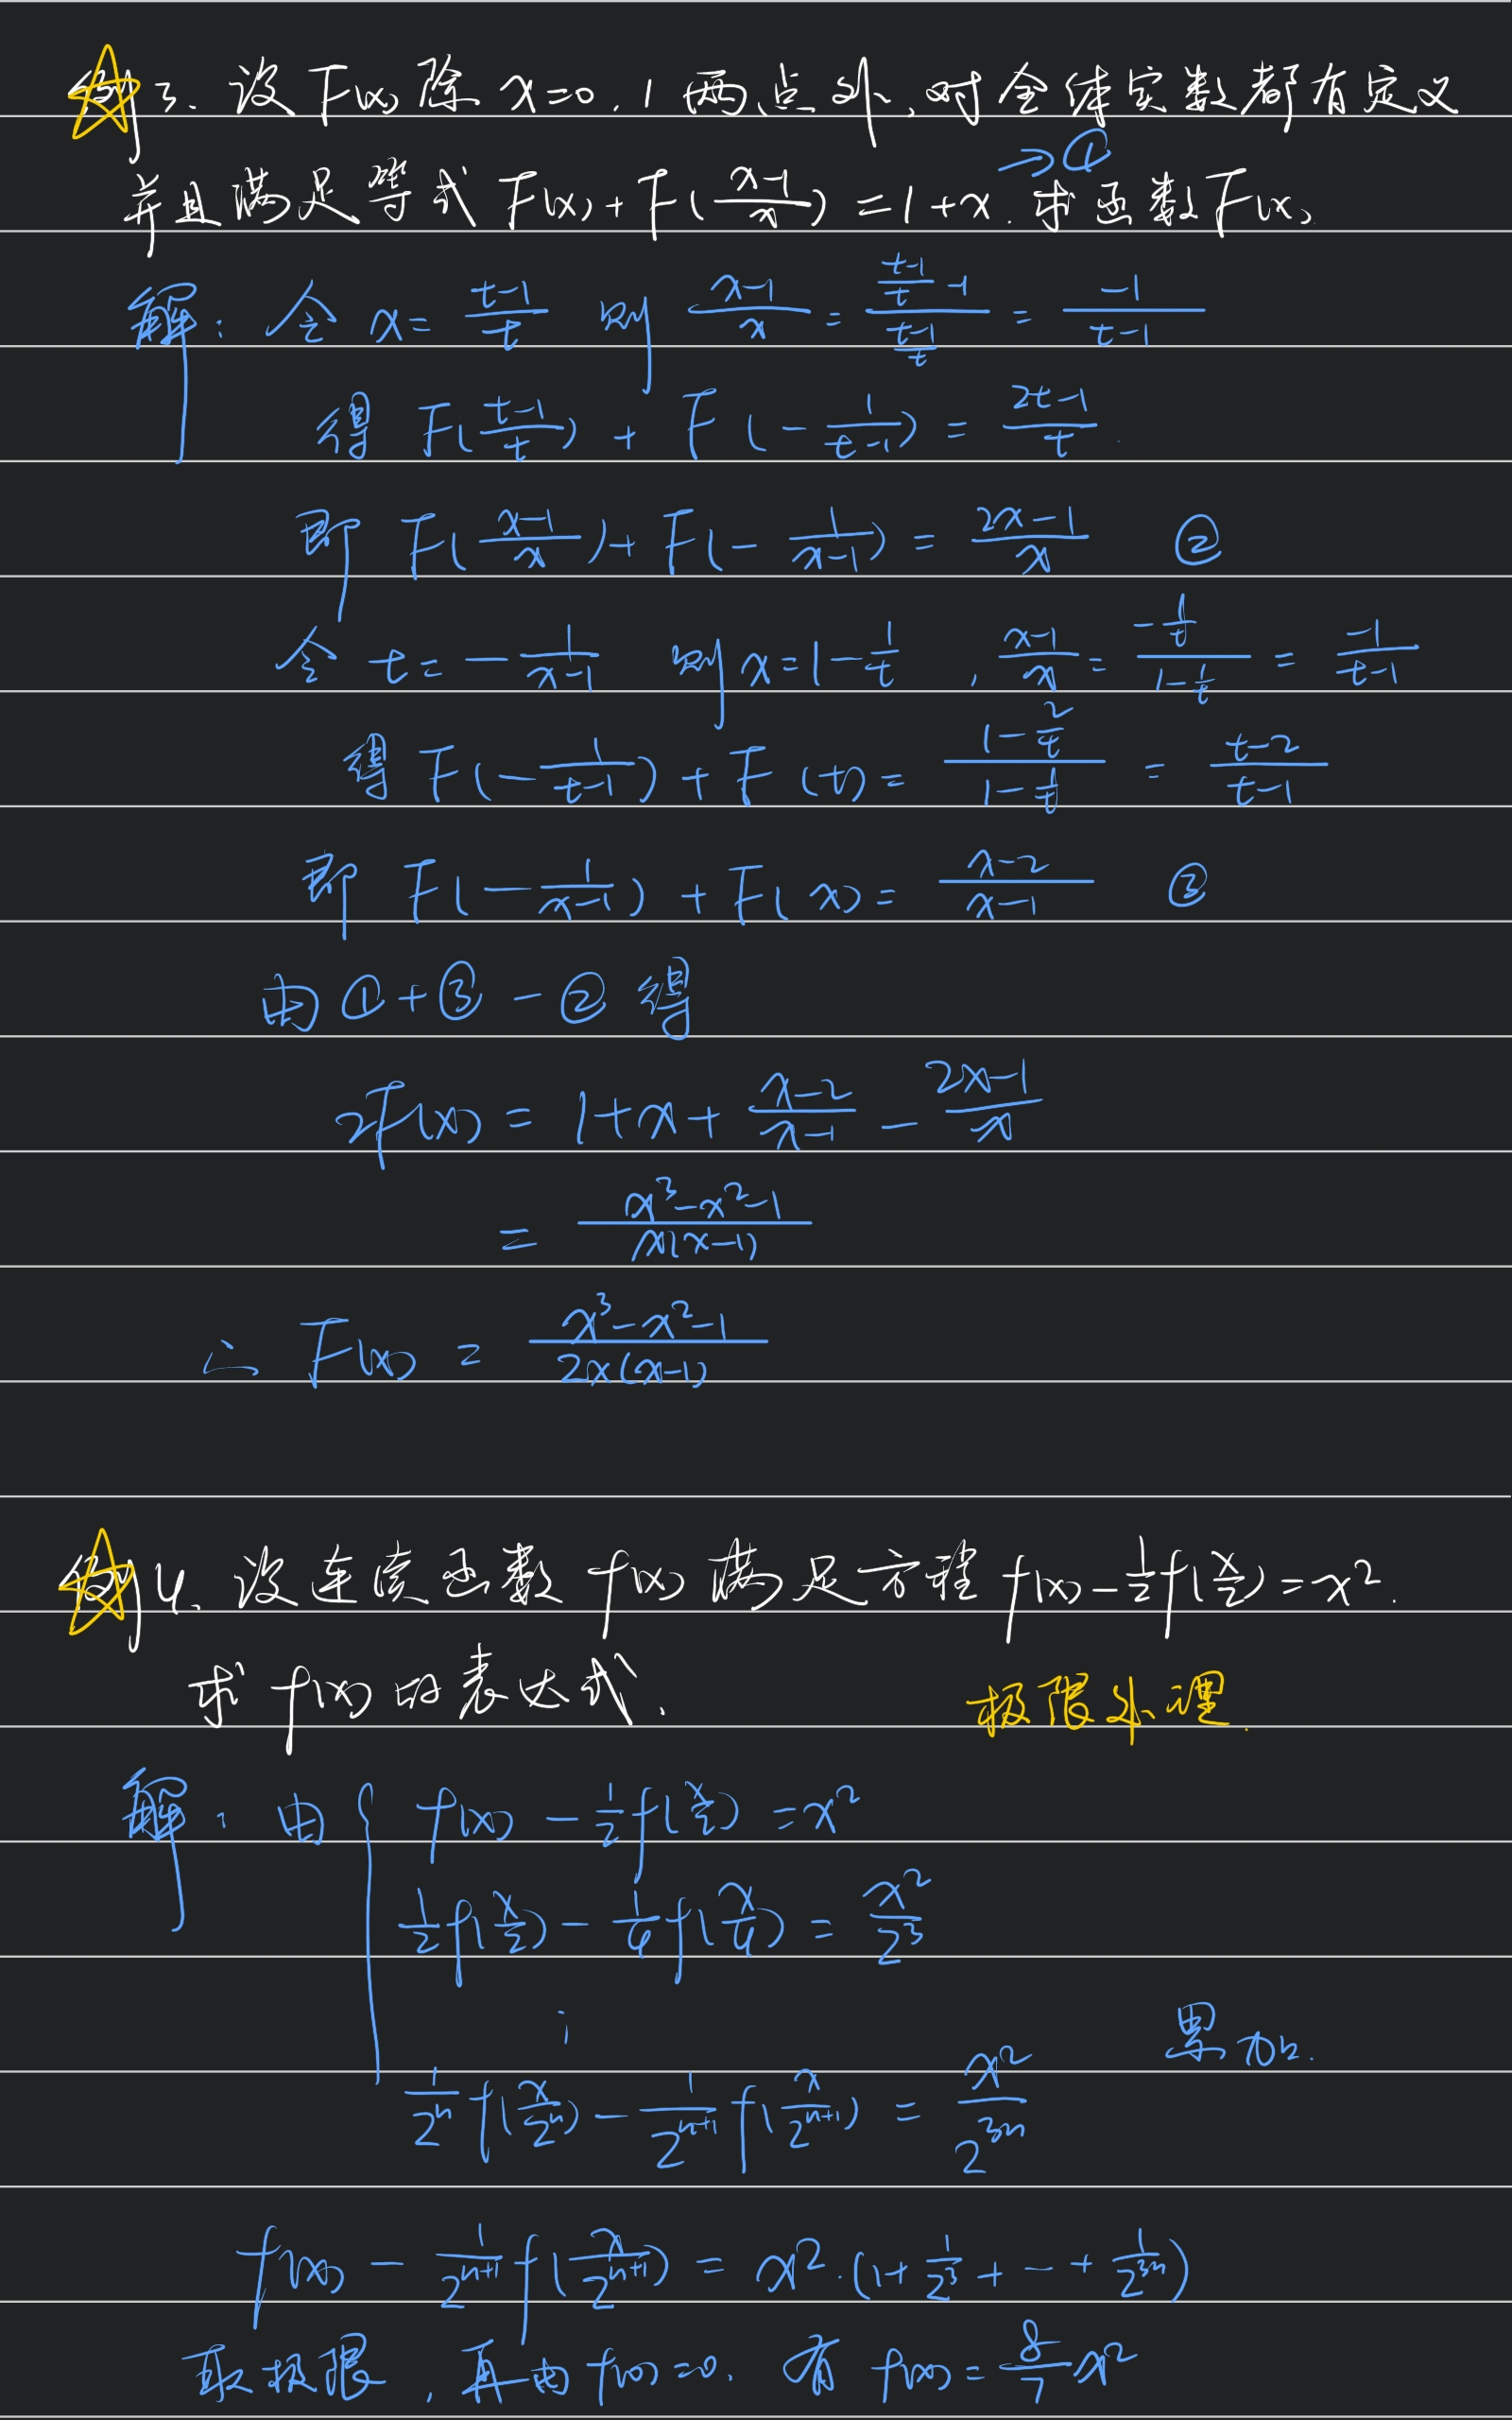 例3. 设F(x)除x=0,1两点外,对全体实数都有定义
并且满足等式F(x)+F((x-1)/x)=1+x.求函数F(x). →①
解:令x=(t-1)/t 则 (x-1)/x=((t-1)/t-1)/((t-1)/t)=-1/(t-1)
得 F((t-1)/t)+F(-1/(t-1))=(2t-1)/t.
即 F((x-1)/x)+F(-1/(x-1))=(2x-1)/x ②
令 t=-1/(x-1) 则x=1-1/t , (x-1)/x=(-1/t)/(1-1/t)=-1/(t-1)
得 F(-1/(t-1))+F(t)=(1-2/t)/(1-1/t)=(t-2)/(t-1)
即 F(-1/(x-1))+F(x)=(x-2)/(x-1) ③
由①+③-②得
2F(x)=1+x+(x-2)/(x-1)-(2x-1)/x
=(x³-x²-1)/(x(x-1))
∴ F(x)=(x³-x²-1)/(2x(x-1))
例4. 设连续函数f(x)满足方程f(x)-1/2f(x/2)=x².
求f(x)的表达式. 极限处理.
解:由{ f(x)-1/2f(x/2)=x²
1/2f(x/2)-1/4f(x/4)=x²/2³
⋮ 累加.
1/2ⁿf(x/2ⁿ)-1/2ⁿ⁺¹f(x/2ⁿ⁺¹)=x²/2³ⁿ
f(x)-1/2ⁿ⁺¹f(x/2ⁿ⁺¹)=x²·(1+1/2³+…+1/2³ⁿ)
取极限,再由f(0)=0.有f(x)=8/7x²